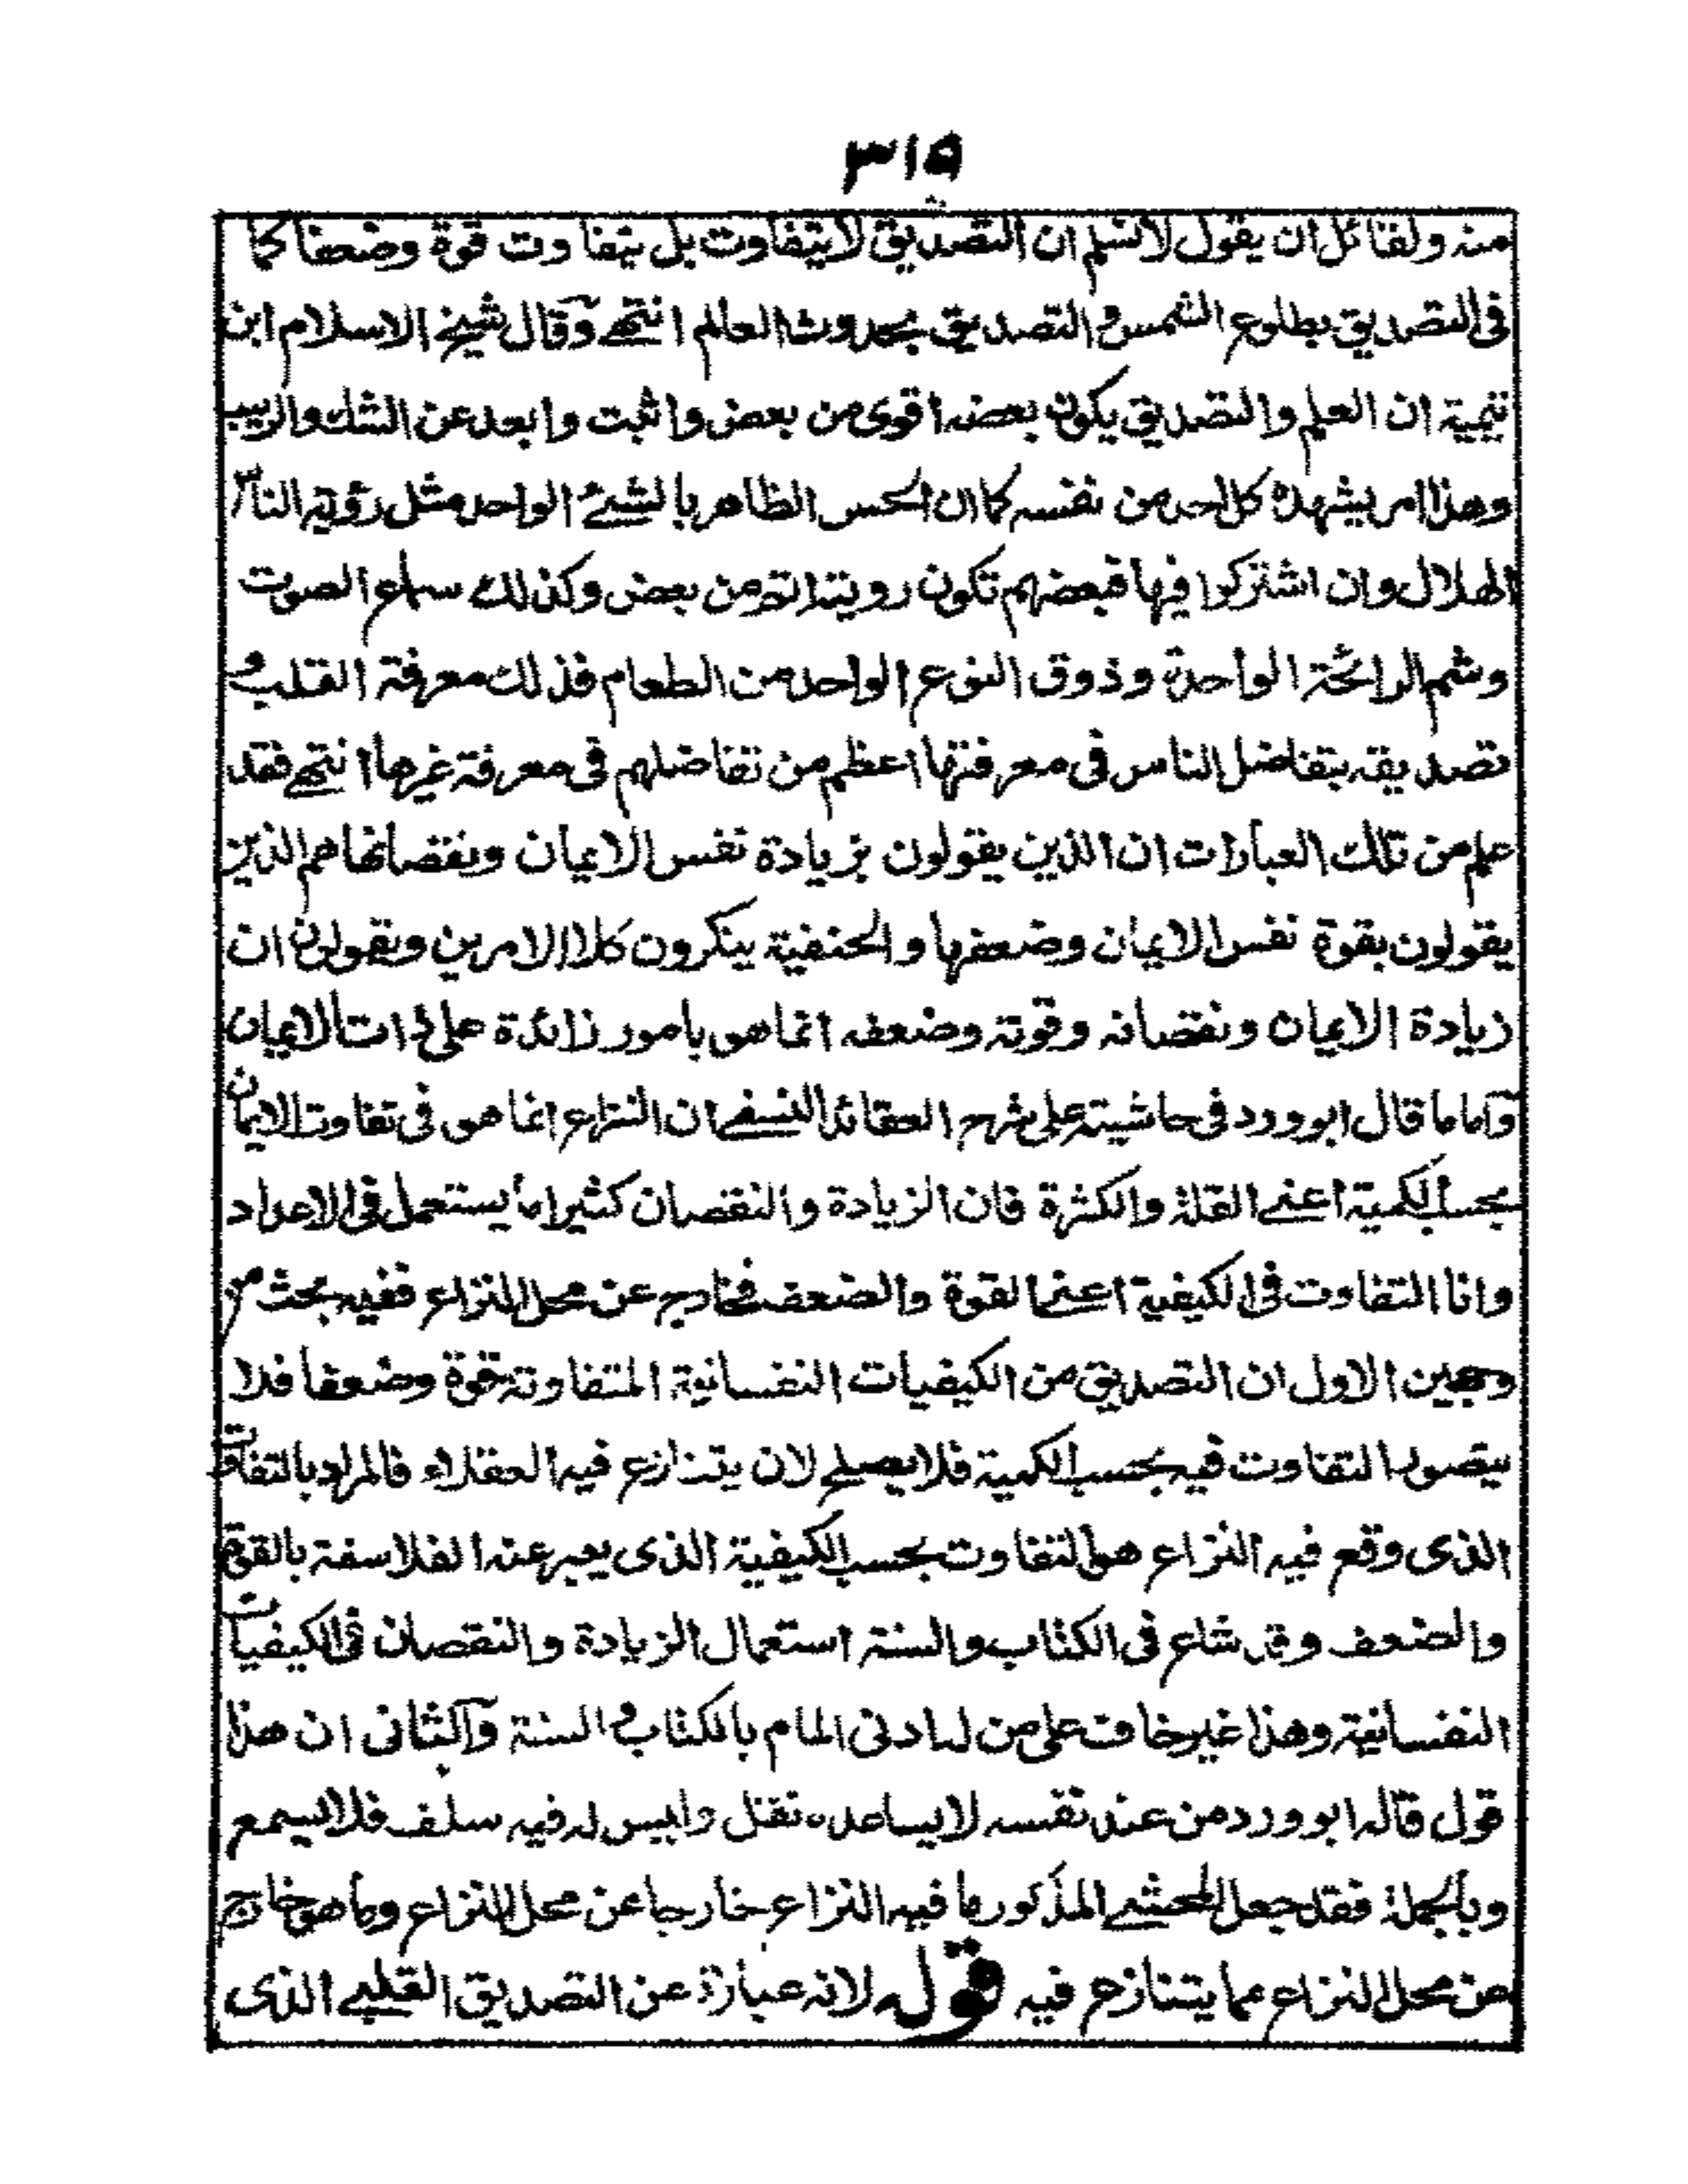 ٣١٥
منه ولقائل ان يقول لا نسلم ان التصديق لا يتفاوت بل يتفاوت قوة وضعفا كما
فى التصديق بطلوع الشمس والتصديق بحدوث العالم انتهى وقال شيخ الاسلام ابن
تيمية ان العلم والتصديق يكون بعضه اقوى من بعض واثبت وابعد عن الشك والريب
وهذا امر يشهده كل احد من نفسه كما ان الحس الظاهر بالشئ الواحد مثل رؤية الناس
الهلال وان اشتركوا فيها فبعضهم تكون رويته اتم من بعض وكذلك سماع الصوت
وشم الرائحة الواحدة وذوق النوع الواحد من الطعام فذلك معرفة القلب و
تصديقه يتفاضل الناس فى معرفتها اعظم من تفاضلهم فى معرفة غيرها انتهى فقد
علم من تلك العبارات ان الذين يقولون بزيادة نفس الايمان ونقصانها هم الذين
يقولون بقوة نفس الايمان وضعفها والحنفية ينكرون كلا الامرين ويقولون ان
زيادة الايمان ونقصانه وقوته وضعفه انما هو بامور زائدة على ذات الايمان
واما ما قال ابو ورد فى حاشيته على شرح العقائد النسفى ان النزاع انما هو فى تفاوت الايمان
بحسب الكمية اعنى القلة والكثرة فان الزيادة والنقصان كثيرا ما يستعمل فى الاعداد
وانا التفاوت فى الكيفية اعنى القوة والضعف فخارج عن محل النزاع ففيه بحث من
وجهين الاول ان التصديق من الكيفيات النفسانية المتفاوتة قوة وضعفا فلا
يتصور التفاوت فيه بحسب الكمية فلا يصلح لان يتنازع فيه العقلاء فالمراد بالتفاوت
الذى وقع فيه النزاع هو التفاوت بحسب الكيفية الذى يعبر عنه الفلاسفة بالقوة
والضعف وقد شاع فى الكتاب والسنة استعمال الزيادة والنقصان فى الكيفيات
النفسانية وهذا غير خاف على من له ادنى المام بالكتاب والسنة والثانى ان هذا
قول قاله ابو ورد من عند نفسه لا يساعده نقل وليس له فيه سلف فلا يسمع
وبالجملة فقد جعل المحشى المذكور ما فيه النزاع خارجا عن محل النزاع وما هو خارج
عن محل النزاع مما يتنازع فيه قوله لانه عبارة عن التصديق القلبى الذى